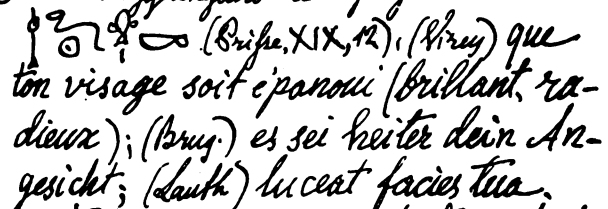 (Prisse, XIX, 12); (Virey) que
ton visage soit épanoui (brillant, ra-
dieux); (Brug.) es sei heiter dein An-
gesicht; (Lauth) luceat facies tua.